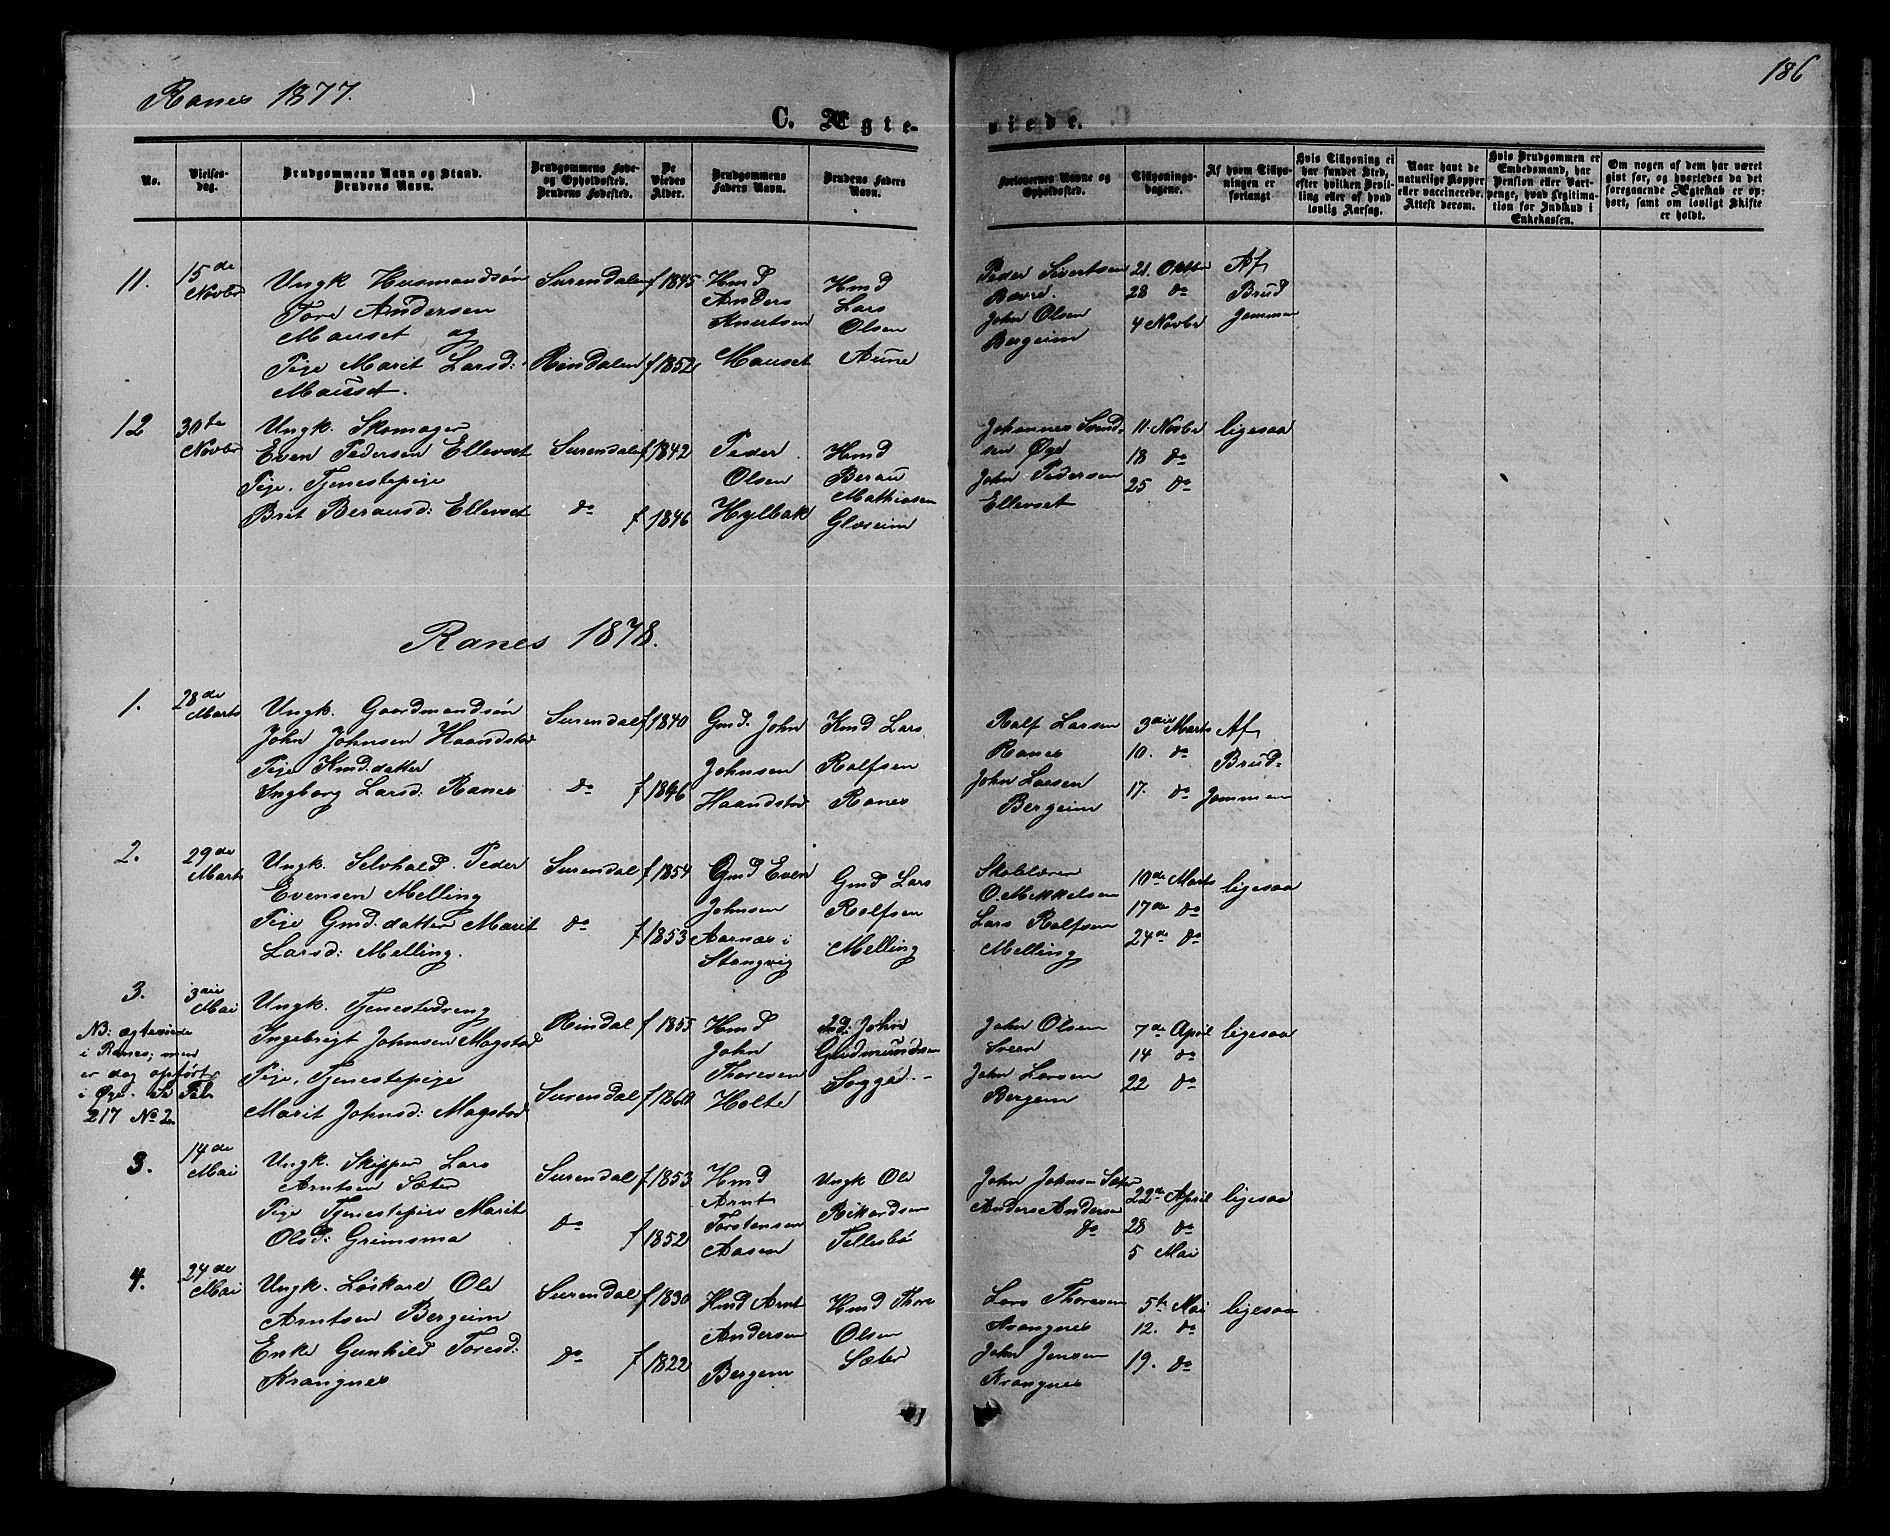 186
Ranes 1877.
C. Ægte-
viede.
No.
Vielses-
dag.
Brudgommens Navn og Stand.
Brudens Navn.
Brudgommens Føde-
og Opholdssted.
Brudens Fødested.
De
Viedes
Alder.
Brudgommens
Faders Navn.
Brudens Faders
Navn.
Forlovernes Navne og
Opholdssted.
Tillysnings-
dagene.
Af hvem Tillys-
ningen er
forlangt
Hvis Tillysning ei
har fundet Sted,
efter hvilken Bevil-
ling eller af hvad
lovlig Aarsag.
Naar havt de
naturlige Kopper
eller vaccinerede.
Attest derom.
Hvis Brudgommen er
Embedsmand, har
Pension eller Vart-
penge, hvad Legitima-
tion for Indskud i
Enkekassen.
Om nogen af dem har været
gift før, og hvorledes da det
foregaaende Ægteskab er op-
hørt, samt om lovligt Skifte
er holdt.
11.
15de
Novbr
Ungk Husmandsøn
Tore Andersen
Mauset og
Pige Marit Larsd:
Mauset.
Surendalen
Rindalen
f 1845
f 1852
Hmd
Anders
Knutsen
Mauset
Hmd
Lars
Olsen
Aune
Peder Sivertsen
Bævre.
John Olsen
Bergeim
21. Oktbr
28 do
4 Novbr
Af
Brud
Jommen
12
30te
Novbr
Ungk. Skomager
Even Pedersen Ellevset
Pige, Tjenestepige
Brit Berausd: Ellevset
Surendalen
do
f 1842
f 1846
Peder
Olsen
Hylbak
Hmd
Berau
Mathiasen
Glæseim
Johannes Svend-
sen Øye
John Pedersen
Ellevset
11. Novbr
18 do
25 do
ligesaa
Ranes 1878.
1.
28de
Marts
Ungk. Gaardmandsøn
John Johnsen Haandstad
Pige Kmd.datter
Ingborg Larsd. Ranes
Surendal
do
f 1840
f 1846
Gmd. John
Johnsen
Haandstad
Kmd Lars
Rolfsen
Ranes
Rolf Larsen
Ranes
John Larsen
Bergeim
3die Marts
10. do
17. do
Af
Brud-
Jommen
2.
29de
Marts
Ungk. Selvhold. Peder
Evensen Melling
Pige Gmd.datter Marit
Larsd: Melling.
Surendal
do
f 1854
f 1853
Gmd Even
Johnsen
Aarnæs i
Stangvig
Gmd Lars
Rolfsen
Melling
Skolelærer
O. Mikkelsen
Lars Rolfsen
Melling
10de Marts
17de do
24de do
ligesaa
3.
3die
Mai
NB: ægteviede
i Ranes; men
er dog opført
i Øye. Se Fol.
217 No 2.
Ungk. Tjenestedreng
Ingebrigt Johnsen Magstad
Pige, Tjenestepige
Marit Johnsd: Magstad
Rindal
Surendal
f 1855
f 1860
Hmd
John
Thoresen
Holte
John
Gudmundsen
Sogge.
John Olsen
Sveen
John Larsen
Bergem
7de April
14 do
22 do
ligesaa
3.
14de
Mai
Ungk. Skipper Lars
Arntsen Sæter
Pige Tjenestepige Marit
Olsd: Grimsmo
Surendal
do
f 1853
f 1852
Hmd
Arnt
Torstensen
Aasen
Ungk Ole
Rikardsen
Tellesbø
John Johnsen Sæter
Anders Andersen
do
22de April
28 do
5 Mai
ligesaa
4.
24de
Mai
Ungk. Løskarl Ole
Arntsen Bergeim
Enke Gunhild Toresd:
Krangnes
Surendal
do
f 1830
f 1822
Hmd Arnt
Andersen
Bergem
Hmd Thore
Olsen
Sæter
Lars Thoresen
Krangnes
John Jensen
Krangnes
5te Mai
12. do
19. do
ligesaa